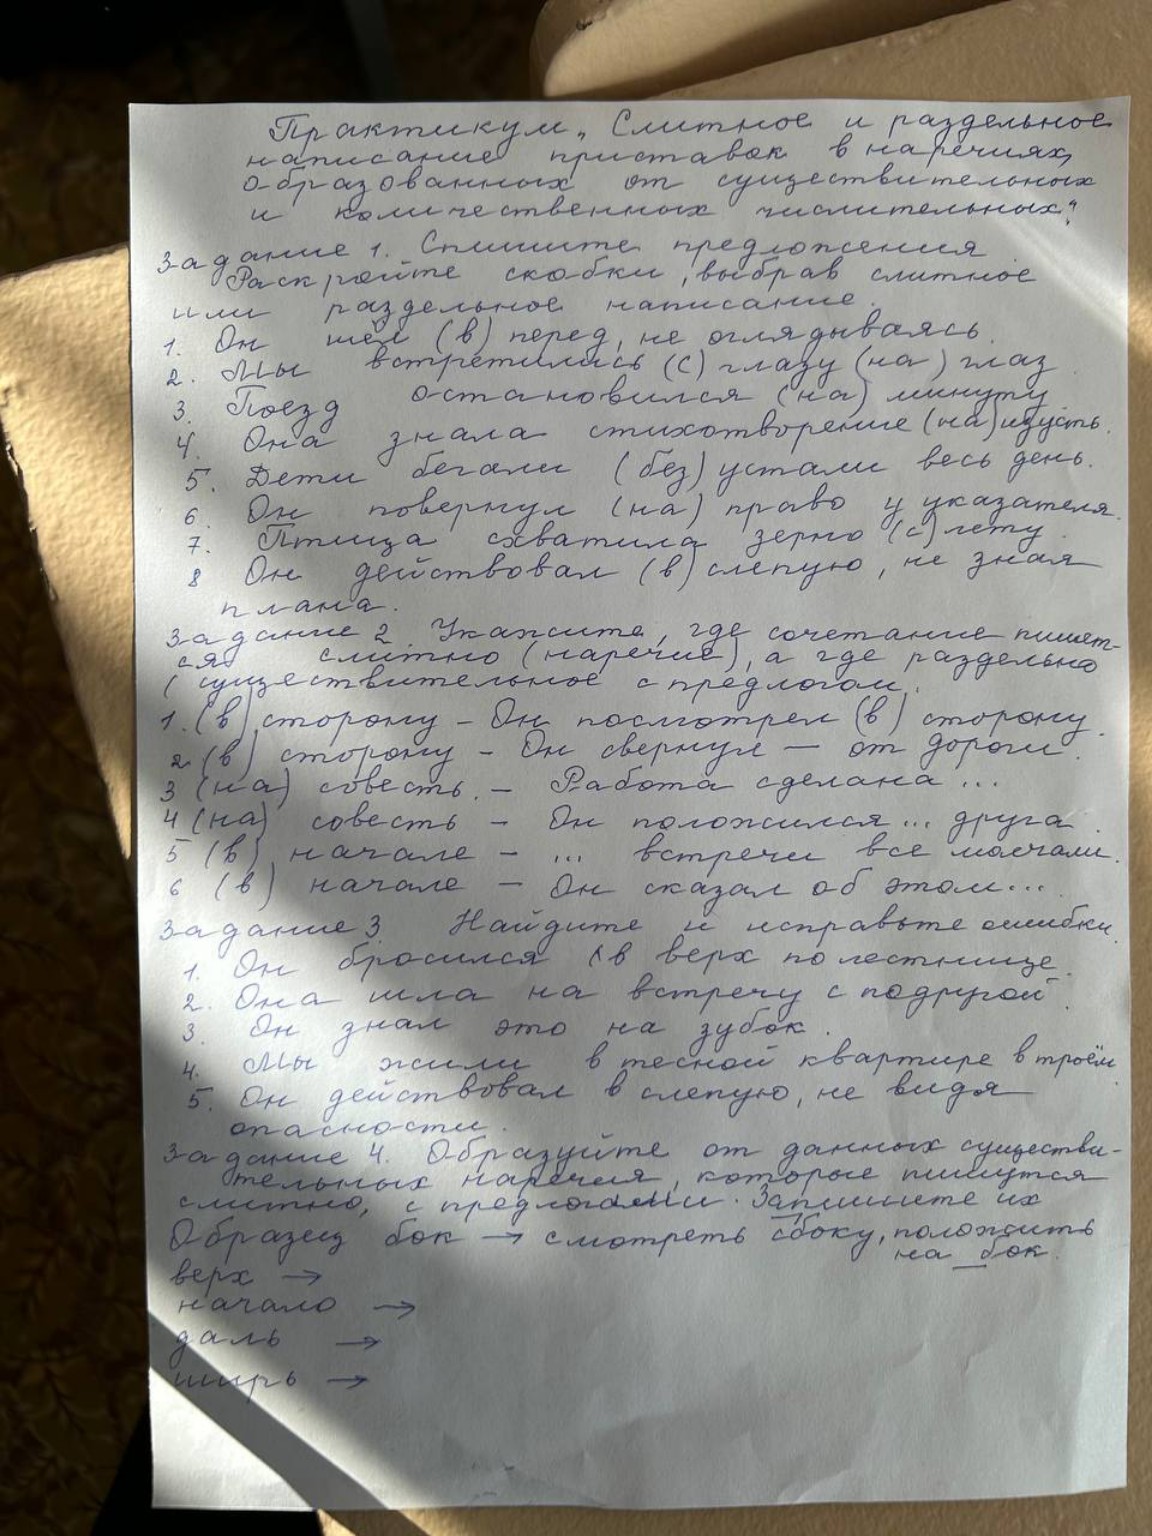 Практикум „Слитное и раздельное
написание приставок в наречиях,
образованных от существительных
и количественных числительных“
Задание 1. Спишите предложения
Раскройте скобки, выбрав слитное
или раздельное написание.
1. Он шёл (в) перед, не оглядываясь.
2. Мы встретились (с) глазу (на) глаз.
3. Поезд остановился (на) минуту.
4. Она знала стихотворение (на) изусть.
5. Дети бегали (без) устали весь день.
6. Он повернул (на) право у указателя.
7. Птица схватила зерно (с) лету.
8 Он действовал (в) слепую, не зная
плана.
Задание 2 Укажите, где сочетание пишет-
ся слитно (наречие), а где раздельно
(существительное с предлогом.
1. (в) сторону – Он посмотрел (в) сторону.
2 (в) сторону – Он свернул — от дороги.
3 (на) совесть. – Работа сделана ...
4 (на) совесть – Он положился ... друга.
5 (в) начале – ... встречи все молчали.
6 (в) начале – Он сказал об этом...
Задание 3 Найдите и исправьте ошибки.
1. Он бросился (в верх по лестнице.
2. Она шла на встречу с подругой.
3. Он знал это на зубок.
4. Мы жили в тесной квартире в троём.
5. Он действовал в слепую, не видя
опасности.
Задание 4. Образуйте от данных существи-
тельных наречия, которые пишутся
слитно, с предлогами. Запишите их
Образец бок → смотреть сбоку, положить
на бок.
верх →
начало →
даль →
ширь →